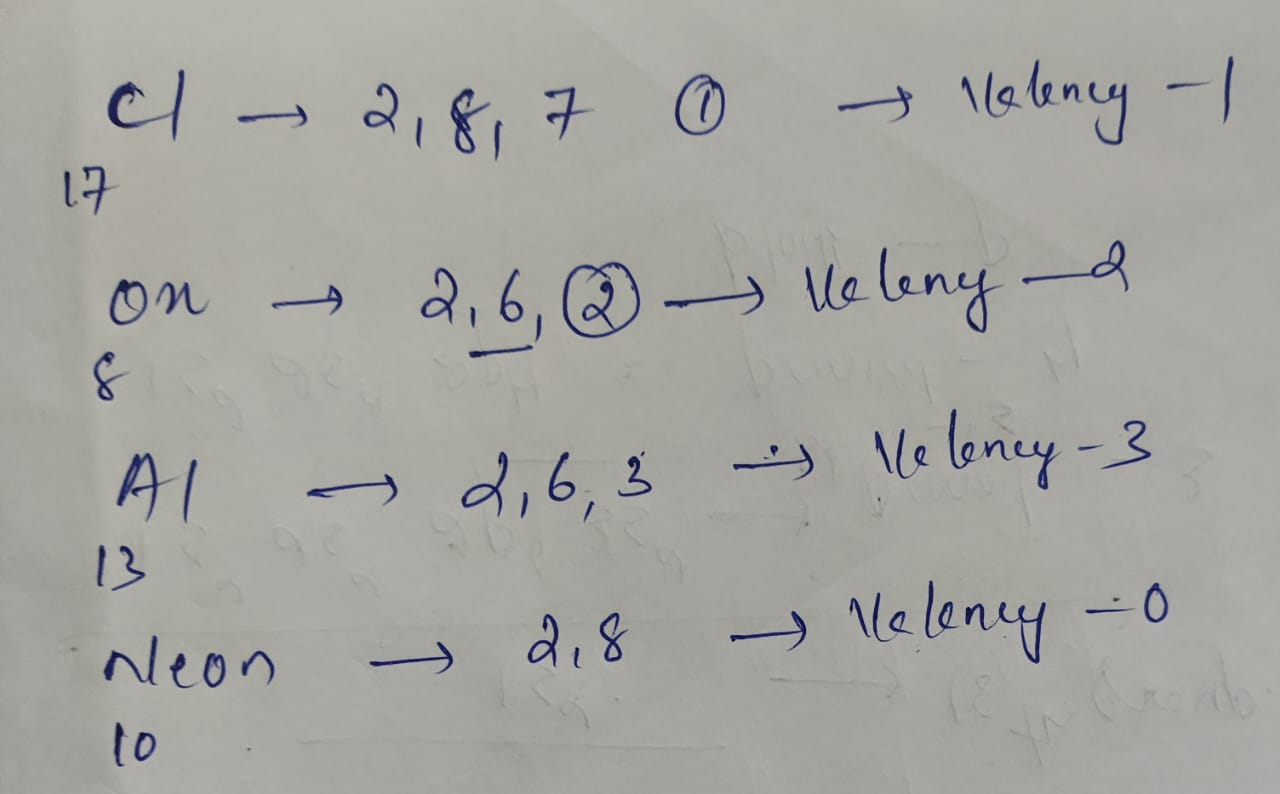 Cl → 2, 8, 7 ① → Valency - 1
17
Ox → 2, 6, ② → Valeny - 2
8
Al → 2, 6, 3 → Valency - 3
13
Neon → 2, 8 → Valency - 0
10